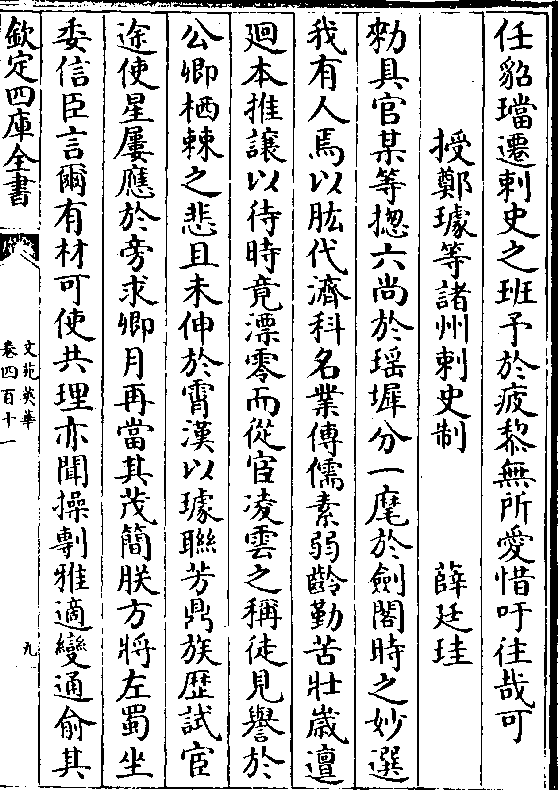 任貂璫遷刺史之班予於疲黎無所愛惜吁往哉可
授鄭璩等諸州刺史制　薛廷珪
勑具官某等揔六尚於瑶墀分一麾於劍閣時之妙選
我有人焉以肱代濟科名業傳儒素弱齡勤苦壯嵗邅
廻本推讓以待時竟漂零而從宦凌雲之稱徒見譽於
公卿栖棘之悲且未伸於霄漢以璩聯芳鼎族歴試宦
途使星屢應於旁求卿月再當其茂簡朕方將左蜀坐
委信臣言爾有材可使共理亦聞操剸雅適變通俞其
欽定四庫全書
文苑英華
卷四百十一
九